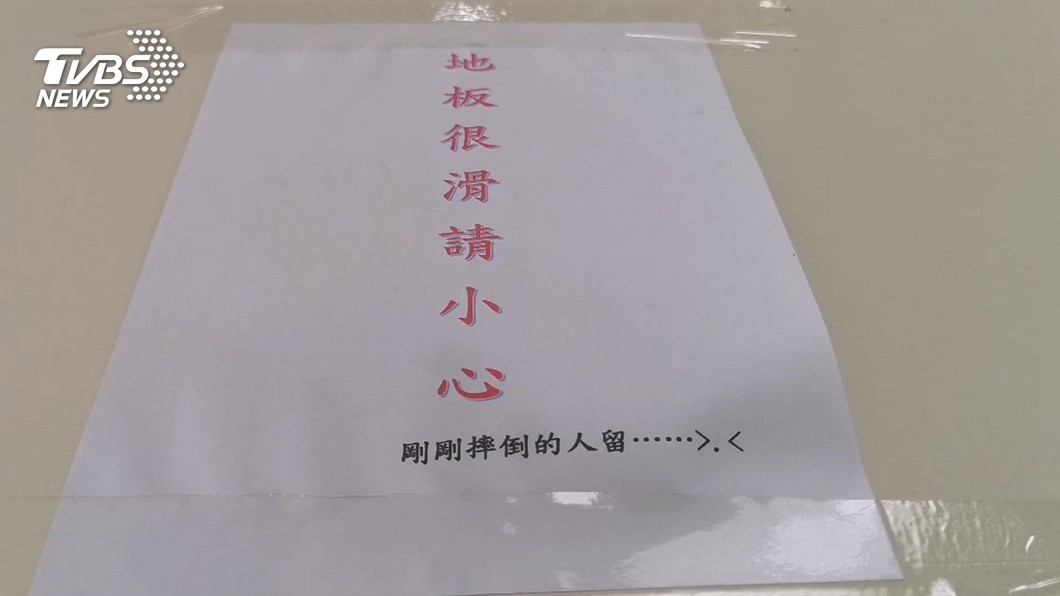 TVBS
NEWS
地板很滑請小心
剛剛摔倒的人留⋯⋯>.<